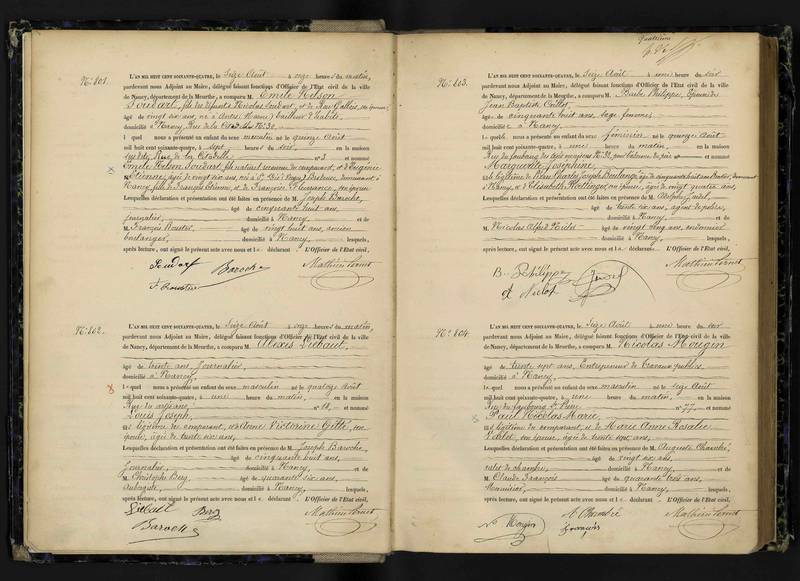 N° 801.
L'AN MIL HUIT CENT SOIXANTE-QUATRE, le Seize Août à onze heures du matin,
pardevant nous Adjoint au Maire, délégué faisant fonctions d'Officier de l'Etat civil de la ville
de Nancy, département de la Meurthe, a comparu M. Emile Nelson
Soudart, fils des défunts Nicolas Soudart, et de
âgé de vingt six ans, né à tailleur d'habits,
domicilié à Nancy, Rue de la N° 30,
lequel nous a présenté un enfant du sexe masculin né le quinze Août
mil huit cent soixante-quatre, à sept heures du soir, en la maison
Rue de la Citadelle n° 3 et nommé
Emile Nelson Soudart, fils naturel reconnu du comparant, et d'Eugénie
Etienne, âgée de vingt six ans, née à St Dié (Vosges) Brodeuse, demeurant à
Nancy, fille de François Etienne, et de Françoise son épouse
Lesquelles déclaration et présentation ont été faites en présence de M. Joseph Baroche,
âgé de cinquante huit ans,
journalier, domicilié à Nancy, et de
M. François Roustre, âgé de vingt huit ans, ancien
boulanger, domicilié à Nancy, lesquels,
après lecture, ont signé le présent acte avec nous et le déclarant. L'Officier de l'Etat civil,
Soudart Baroche
F. Roustre
N° 802.
L'AN MIL HUIT CENT SOIXANTE-QUATRE, le Seize Août à onze heures du matin,
pardevant nous Adjoint au Maire, délégué faisant fonctions d'Officier de l'Etat civil de la ville
de Nancy, département de la Meurthe, a comparu M. Alexis
âgé de trente ans, Journalier,
domicilié à Nancy,
lequel nous a présenté un enfant du sexe masculin né le quatorze Août
mil huit cent soixante-quatre, à une heure du matin, en la maison
Rue des artisans n° 10, et nommé
Louis Joseph,
fils légitime du comparant, et d'Anne Victorine Gille, son
épouse, âgée de trente six ans,
Lesquelles déclaration et présentation ont été faites en présence de M. Joseph Baroche,
âgé de cinquante huit ans,
Journalier, domicilié à Nancy, et de
M. Christophe Berg, âgé de quarante six ans,
aubergiste, domicilié à Nancy, lesquels,
après lecture, ont signé le présent acte avec nous et le déclarant. L'Officier de l'Etat civil,
Berg
Baroche
N° 803.
L'AN MIL HUIT CENT SOIXANTE-QUATRE, le Seize Août à une heure du soir
pardevant nous Adjoint au Maire, délégué faisant fonctions d'Officier de l'Etat civil de la ville
de Nancy, département de la Meurthe, a comparu M. Barbe Philippe, épouse de
Jean Baptiste
âgée de cinquante huit ans, sage femme,
domiciliée à Nancy,
lequel nous a présenté un enfant du sexe féminin né le quinze Août
mil huit cent soixante-quatre, à une heure du matin, en la maison
Rue du faubourg des trois maisons N° 32, n° et nommé
Marguerite Joséphine
fille légitime de Pierre Charles Joseph Boulangé, âgé de cinquante huit ans, demeurant
à Nancy, et d'Elisabeth son épouse, âgée de vingt quatre ans,
Lesquelles déclaration et présentation ont été faites en présence de M. Adolphe
âgé de trente six ans, agent de police,
domicilié à Nancy, et de
M. Nicolas Alfred Niclot âgé de vingt cinq ans, cordonnier
domicilié à Nancy, lesquels,
après lecture, ont signé le présent acte avec nous et le déclarant. L'Officier de l'Etat civil,
B. Philippe
N° 804.
L'AN MIL HUIT CENT SOIXANTE-QUATRE, le Seize Août à une heure du soir
pardevant nous Adjoint au Maire, délégué faisant fonctions d'Officier de l'Etat civil de la ville
de Nancy, département de la Meurthe, a comparu M. Nicolas Mougin
âgé de trente sept ans, Entrepreneur de travaux publics,
domicilié à Nancy,
lequel nous a présenté un enfant du sexe masculin né le seize Août
mil huit cent soixante-quatre, à une heure du matin, en la maison
Rue du faubourg St Pierre n° 77, et nommé
Paul Nicolas Marie,
fils légitime du comparant, et de Marie Anne Rosalie
son épouse, âgée de trente sept ans,
Lesquelles déclaration et présentation ont été faites en présence de M. Auguste Chambré,
âgé de vingt six ans,
valet de chambre, domicilié à Nancy, et de
M. Claude François âgé de quarante trois ans,
Menuisier, domicilié à Nancy, lesquels,
après lecture, ont signé le présent acte avec nous et le déclarant. L'Officier de l'Etat civil,
N. Mougin A. Chambré
François